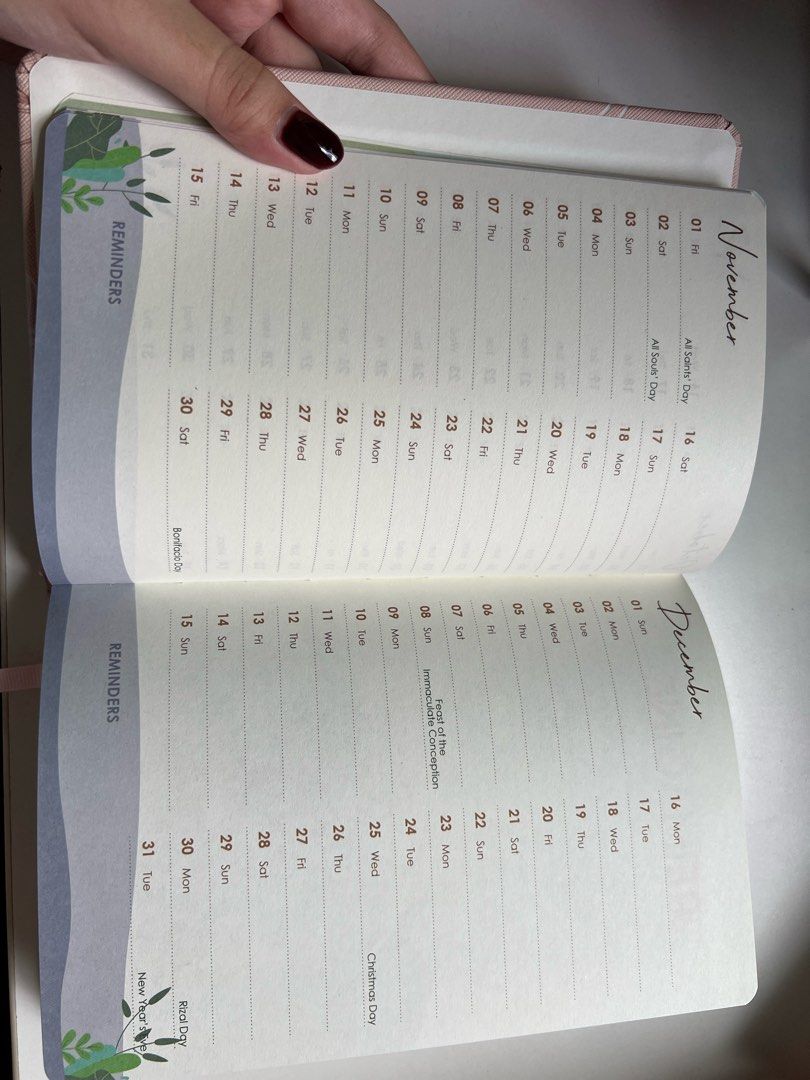 November
01 Fri All Saints' Day
02 Sat All Souls' Day
03 Sun
04 Mon
05 Tue
06 Wed
07 Thu
08 Fri
09 Sat
10 Sun
11 Mon
12 Tue
13 Wed
14 Thu
15 Fri
16 Sat
17 Sun
18 Mon
19 Tue
20 Wed
21 Thu
22 Fri
23 Sat
24 Sun
25 Mon
26 Tue
27 Wed
28 Thu
29 Fri
30 Sat Bonifacio Day
REMINDERS
December
01 Sun
02 Mon
03 Tue
04 Wed
05 Thu
06 Fri
07 Sat
08 Sun Feast of the
Immaculate Conception
09 Mon
10 Tue
11 Wed
12 Thu
13 Fri
14 Sat
15 Sun
16 Mon
17 Tue
18 Wed
19 Thu
20 Fri
21 Sat
22 Sun
23 Mon
24 Tue
25 Wed Christmas Day
26 Thu
27 Fri
28 Sat
29 Sun
30 Mon Rizal Day
31 Tue New Year's Eve
REMINDERS